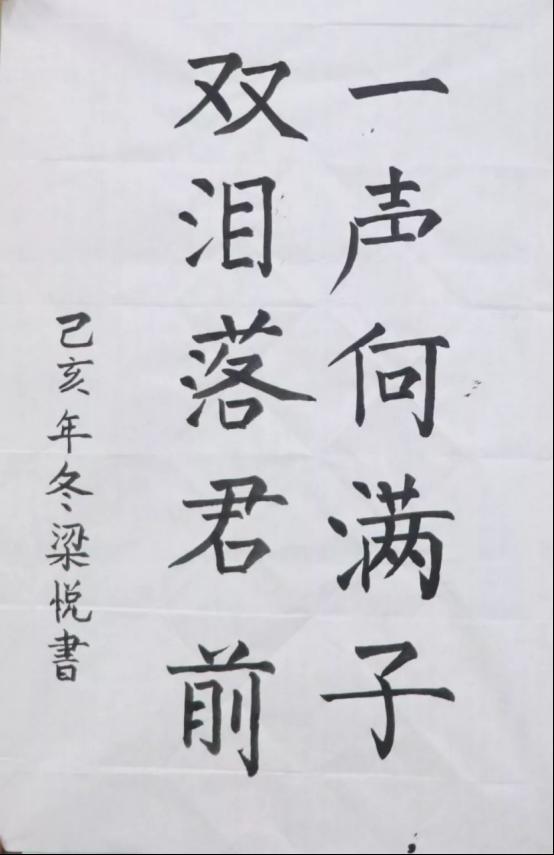 一声何满子
双泪落君前
己亥年冬梁悦書